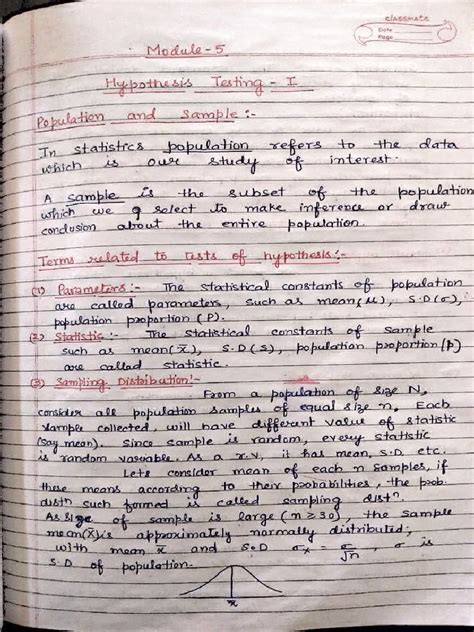 classmate
Date
Page
Module - 5
Hypothesis Testing - I
Population and Sample :-
In statistics population refers to the data
which is our study of interest.
A sample is the subset of the population
which we select to make inference or draw
conclusion about the entire population.
Terms related to tests of hypothesis :-
(1) Parameters :- The statistical constants of population
are called parameters, such as mean (μ), S.D (σ),
population proportion (P).
(2) Statistic :- The statistical constants of sample
such as mean (x̄), S.D (s), population proportion (p)
are called statistic.
(3) Sampling Distribution :-
From a population of size N,
consider all population samples of equal size n. Each
sample collected, will have different value of statistic
(say mean). Since sample is random, every statistic
is random variable. As a r.v, it has mean, S.D. etc.
Lets consider mean of each n samples, if
these means according to their probabilities, the prob.
distn such formed is called sampling distn.
As size of sample is large (n ≥ 30), the sample
mean (x̄) is approximately normally distributed,
with mean x̄ and S.D σx = σ/√n, σ is
S.D of population.
x̄